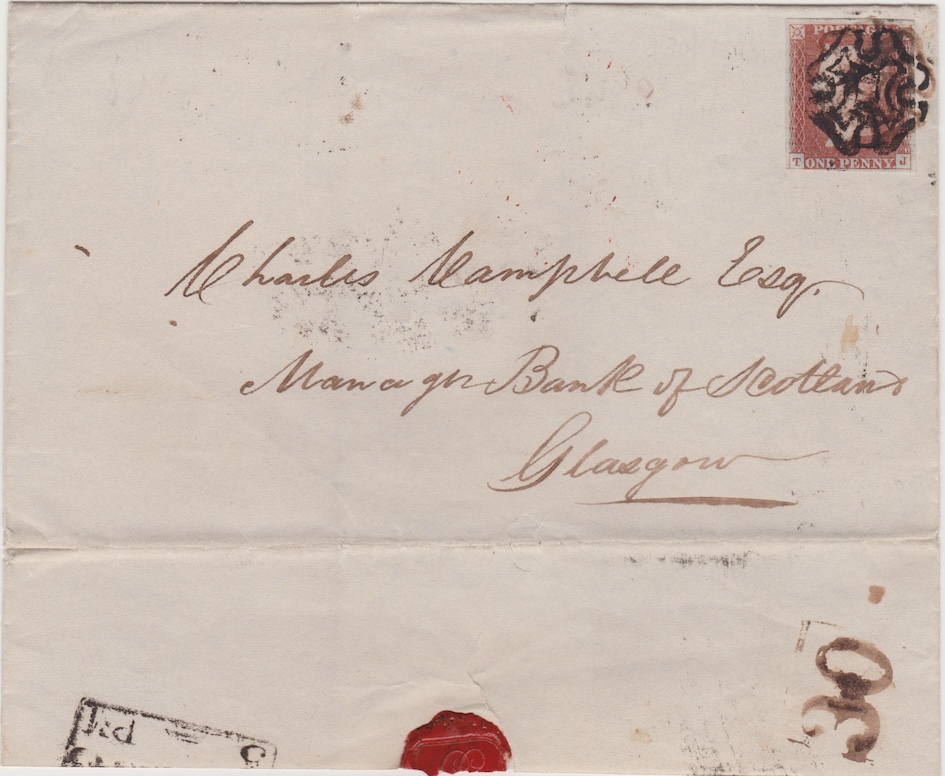 POSTAGE
T ONE PENNY. J
Charles Campbell Esq.
Manager Bank of Scotland
Glasgow
30
PM
5